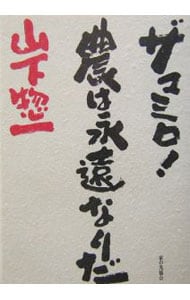 ザマミロ!
農は永遠なりだ
山下惣一
家の光協会